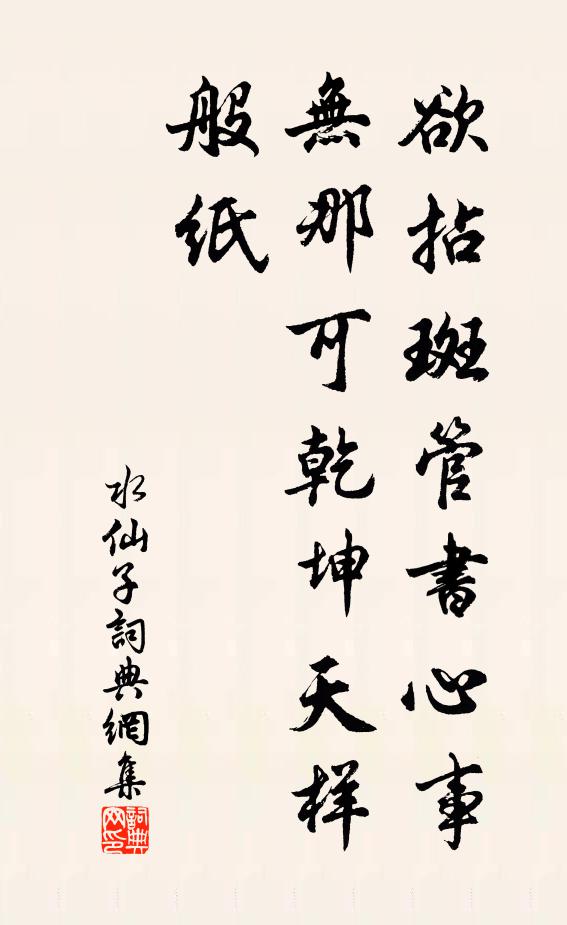 欲拈斑管書心事
無那可乾坤天样
般紙
水仙子詞典網集
詞典
网印